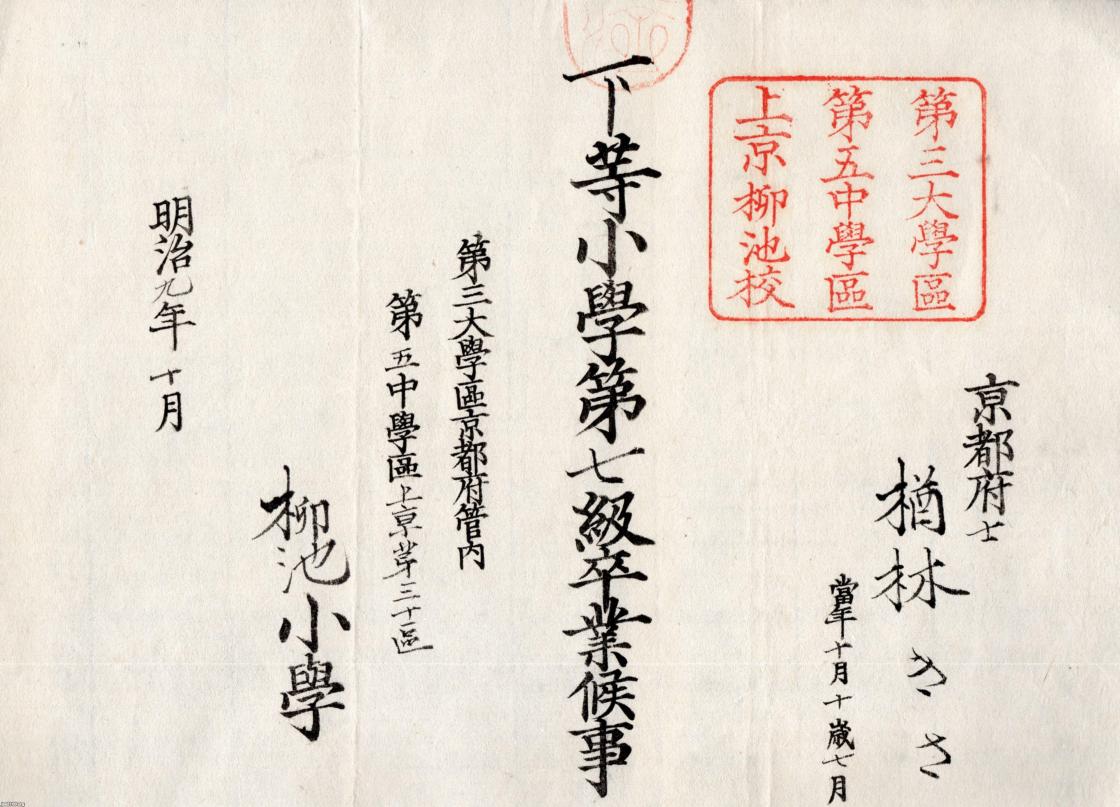 第三大學區
第五中學區
上亰柳池校
亰都府士
楢林 さ
當年十月十歳七月
下等小學第七級卒業候事
第三大學區亰都府管内
第五中學區上亰苐三十區
柳池小學
明治九年十月